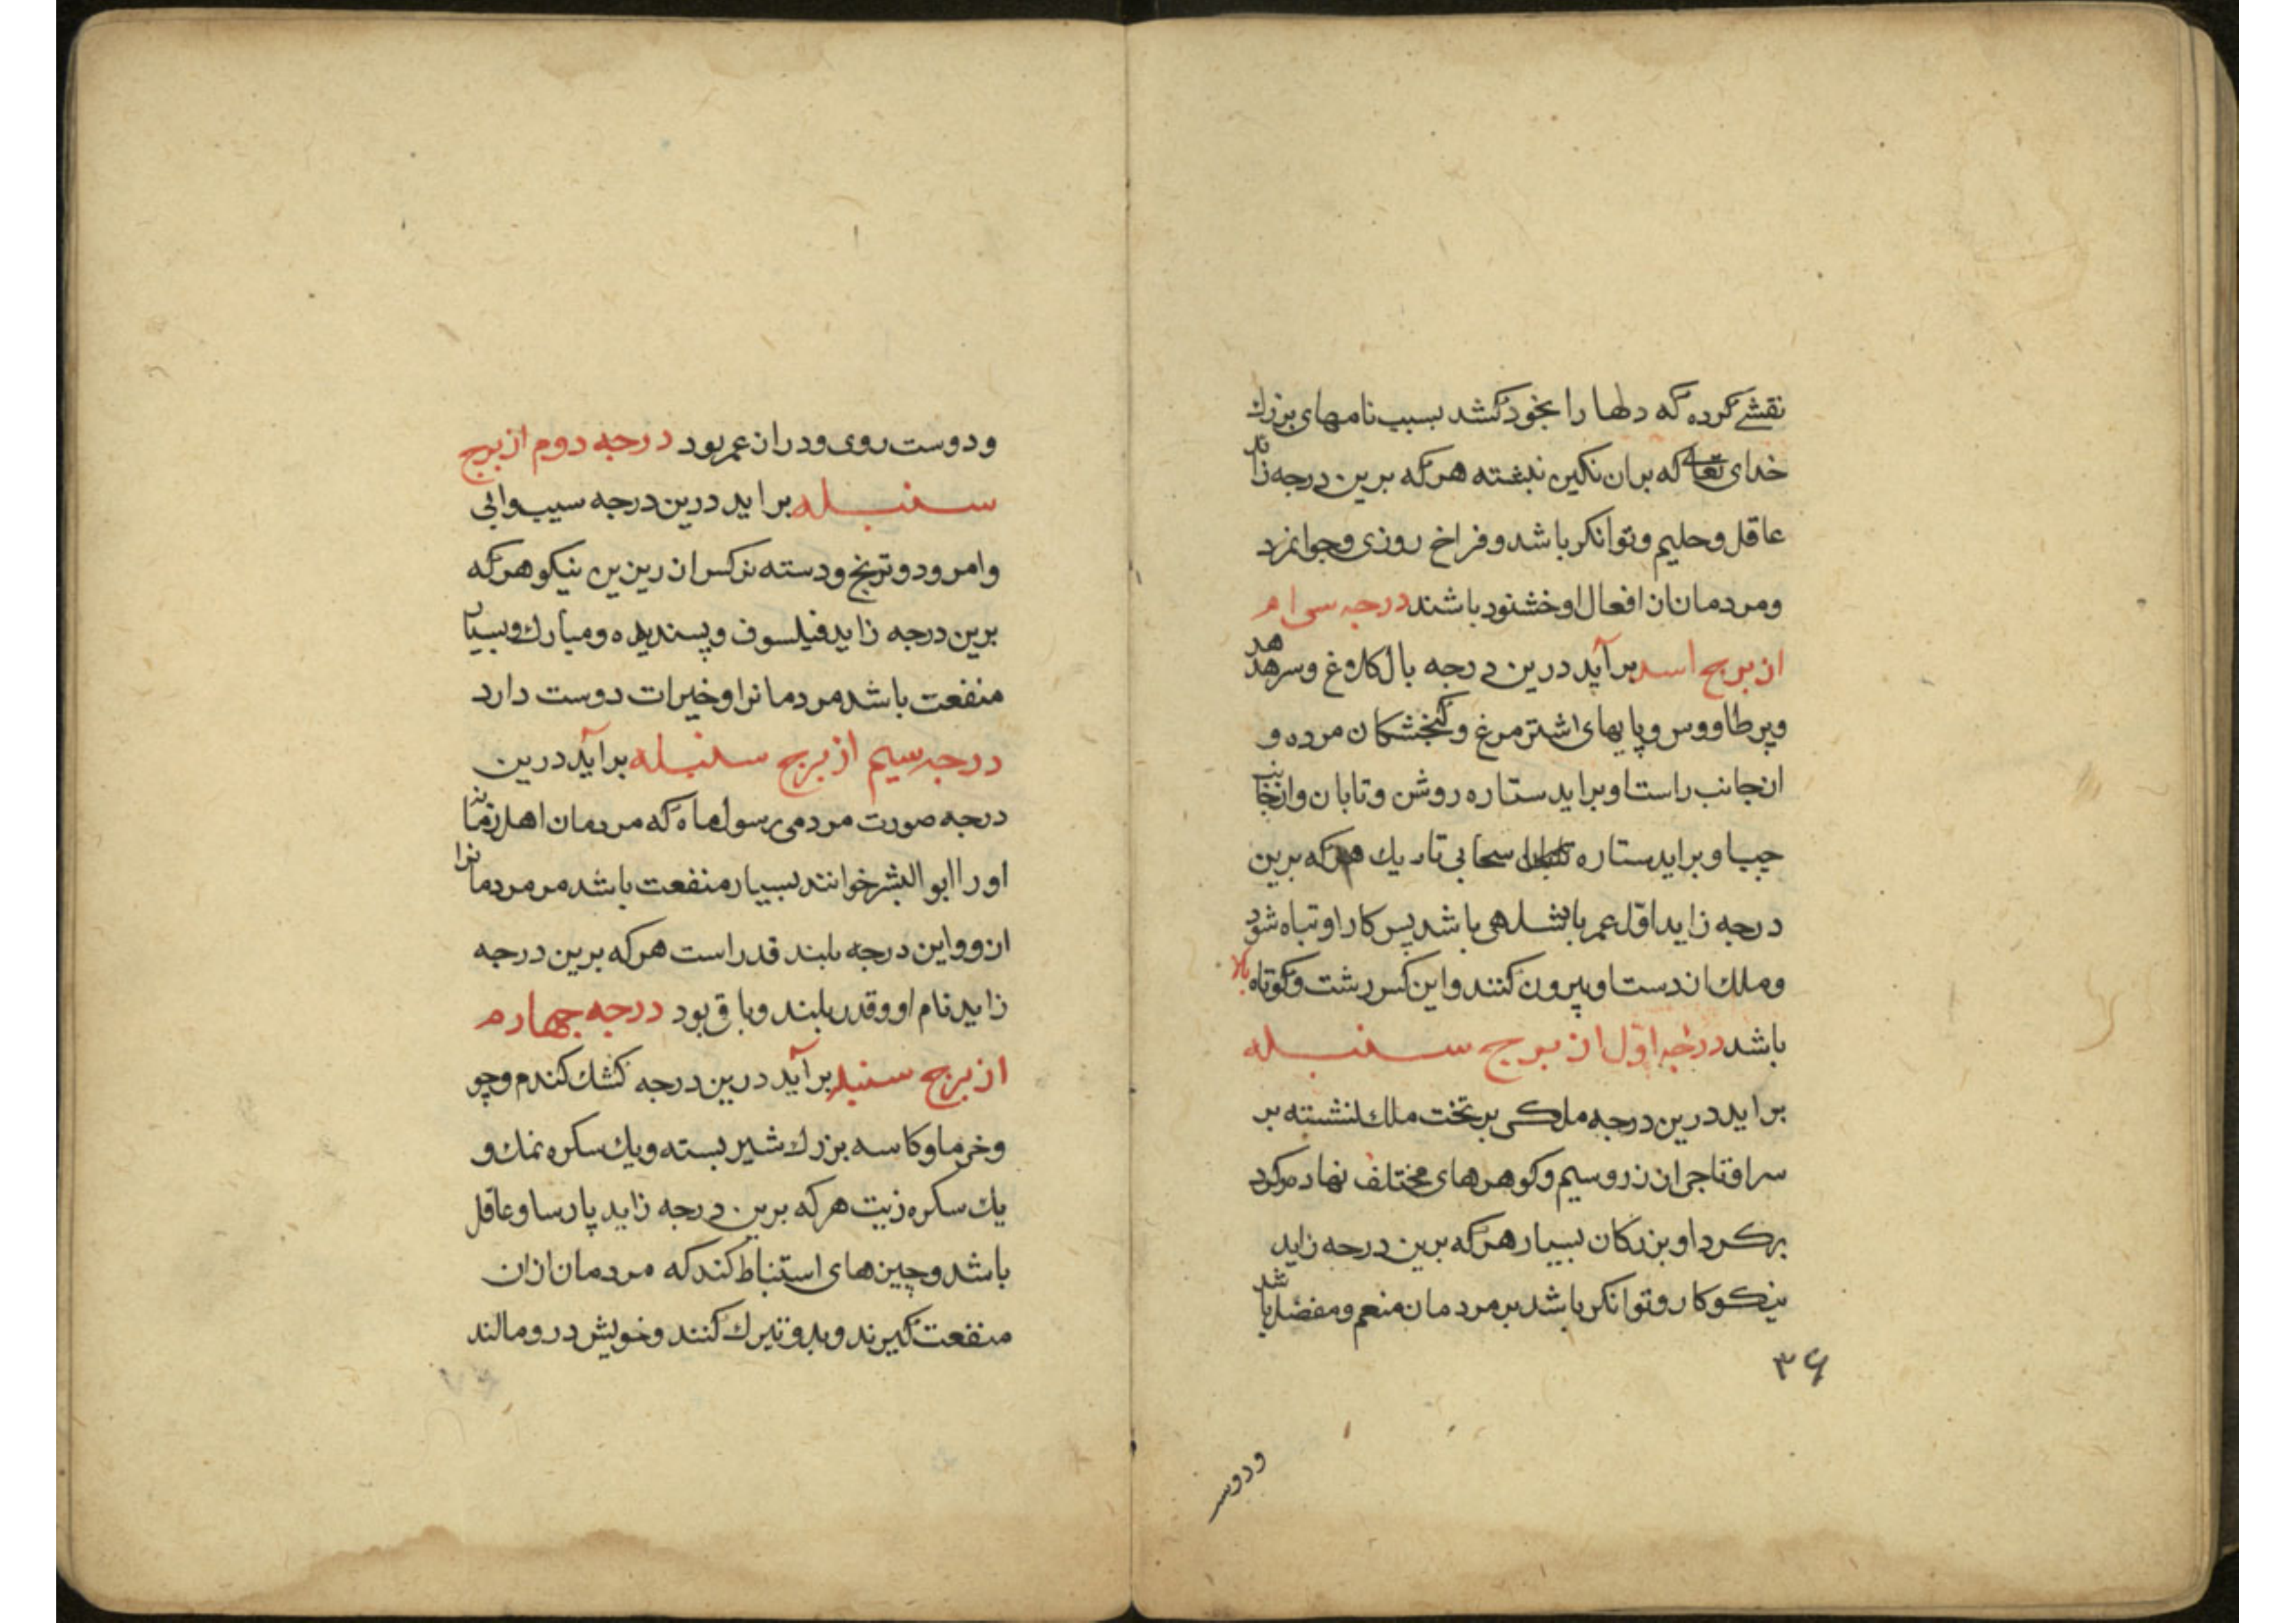 نقشی کرده که دلها را بخود کشد بسبب نامهای بزرك
خدای تعالی که بران نکین نبشته هرکه برین درجه زاید
عاقل و حلیم و توانکر باشد و فراخ روزی و جوانمرد
و مردمان از افعال او خشنود باشند درجه سی ام
از برج اسد برآید درین درجه بال کلاغ و سر هدهد
و پر طاووس و پایهای اشترمرغ و کنجشکان مرده و
از جانب راست او براید ستاره روشن و تابان و از جانب
چپ او براید ستاره سحابی تاریك هرکه برین
درجه زاید اول عمر پادشاهی باشد پس کار او تباه شود
و ملك از دست او بیرون کنند و این کس زشت و کوتاه بالا
باشد درجه اوّل از برج سنبله
براید درین درجه ملکی بر تخت ملك نشسته بر
سر او تاجی از زر و سیم و کوهرهای مختلف نهاده
بر کرد او بزرکان بسیار هرکه برین درجه زاید
نیکوکار و توانکر باشد بر مردمان منعم و مفضل باشد
۳۶
و دوس
و دوست روی و دراز عمر بود درجه دوم از برج
سنبله براید درین درجه سیب و ابی
و امرود و ترنج و دسته نرکس از ریزین نیکو هرکه
برین درجه زاید فیلسوف و پسندیده و مبارك و بسیار
منفعت باشد مردمانرا و خیرات دوست دارد
درجه سیم از برج سنبله برآید درین
درجه صورت مردمی رسول ماه که مردمان اهل زمانه
او را ابو البشر خوانند بسیار منفعت باشد مر مردمانرا
ازو و این درجه بلند قدر است هرکه برین درجه
زاید نام او و قدر بلند و باقی بود درجه چهارم
از برج سنبله برآید درین درجه کشك کندم و جو
و خرما و کاسه بزرك شیر بسته و یك سکره نمك و
یك سکره زیت هرکه برین درجه زاید پارسا و عاقل
باشد و چیزهای استنباط کند که مردمان ازان
منفعت کیرند و بدو تبرك کنند و خویش در و مالند